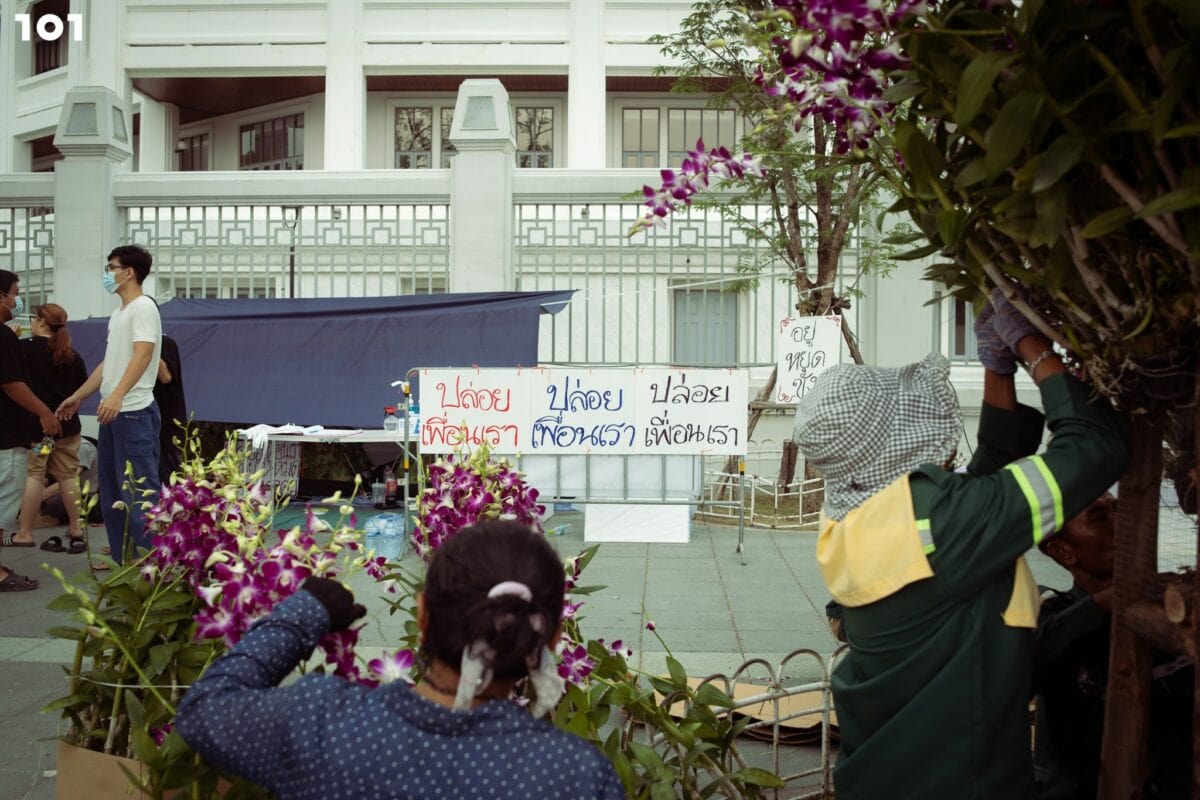 101
อยู่
หยุด
ขัง
ปล่อย ปล่อย ปล่อย
เพื่อนเรา เพื่อนเรา เพื่อนเรา